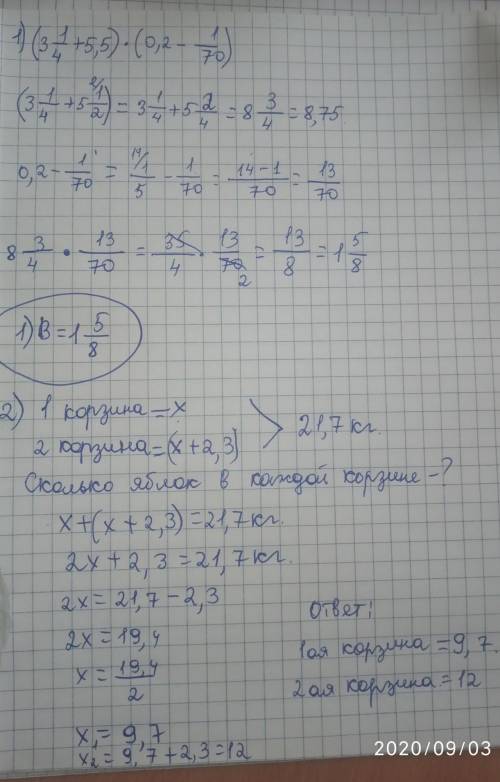 1) (3 1/4 + 5,5) · (0,2 - 1/70)
(3 1/4 + 5 2/1/2) = 3 1/4 + 5 2/4 = 8 3/4 = 8,75
0,2 - 1/70 = 14/1/5 - 1/70 = 14-1/70 = 13/70
8 3/4 · 13/70 = 35/4 · 13/70 2 = 13/8 = 1 5/8
1) В = 1 5/8
2) 1 корзина = x
2 корзина = (x + 2,3) > 21,7 кг.
Сколько яблок в каждой корзине - ?
x + (x + 2,3) = 21,7 кг.
2x + 2,3 = 21,7 кг.
2x = 21,7 - 2,3
2x = 19,4
x = 19,4/2
x₁ = 9,7
x₂ = 9,7 + 2,3 = 12
Ответ:
1ая корзина = 9,7.
2ая корзина = 12
2020/09/03